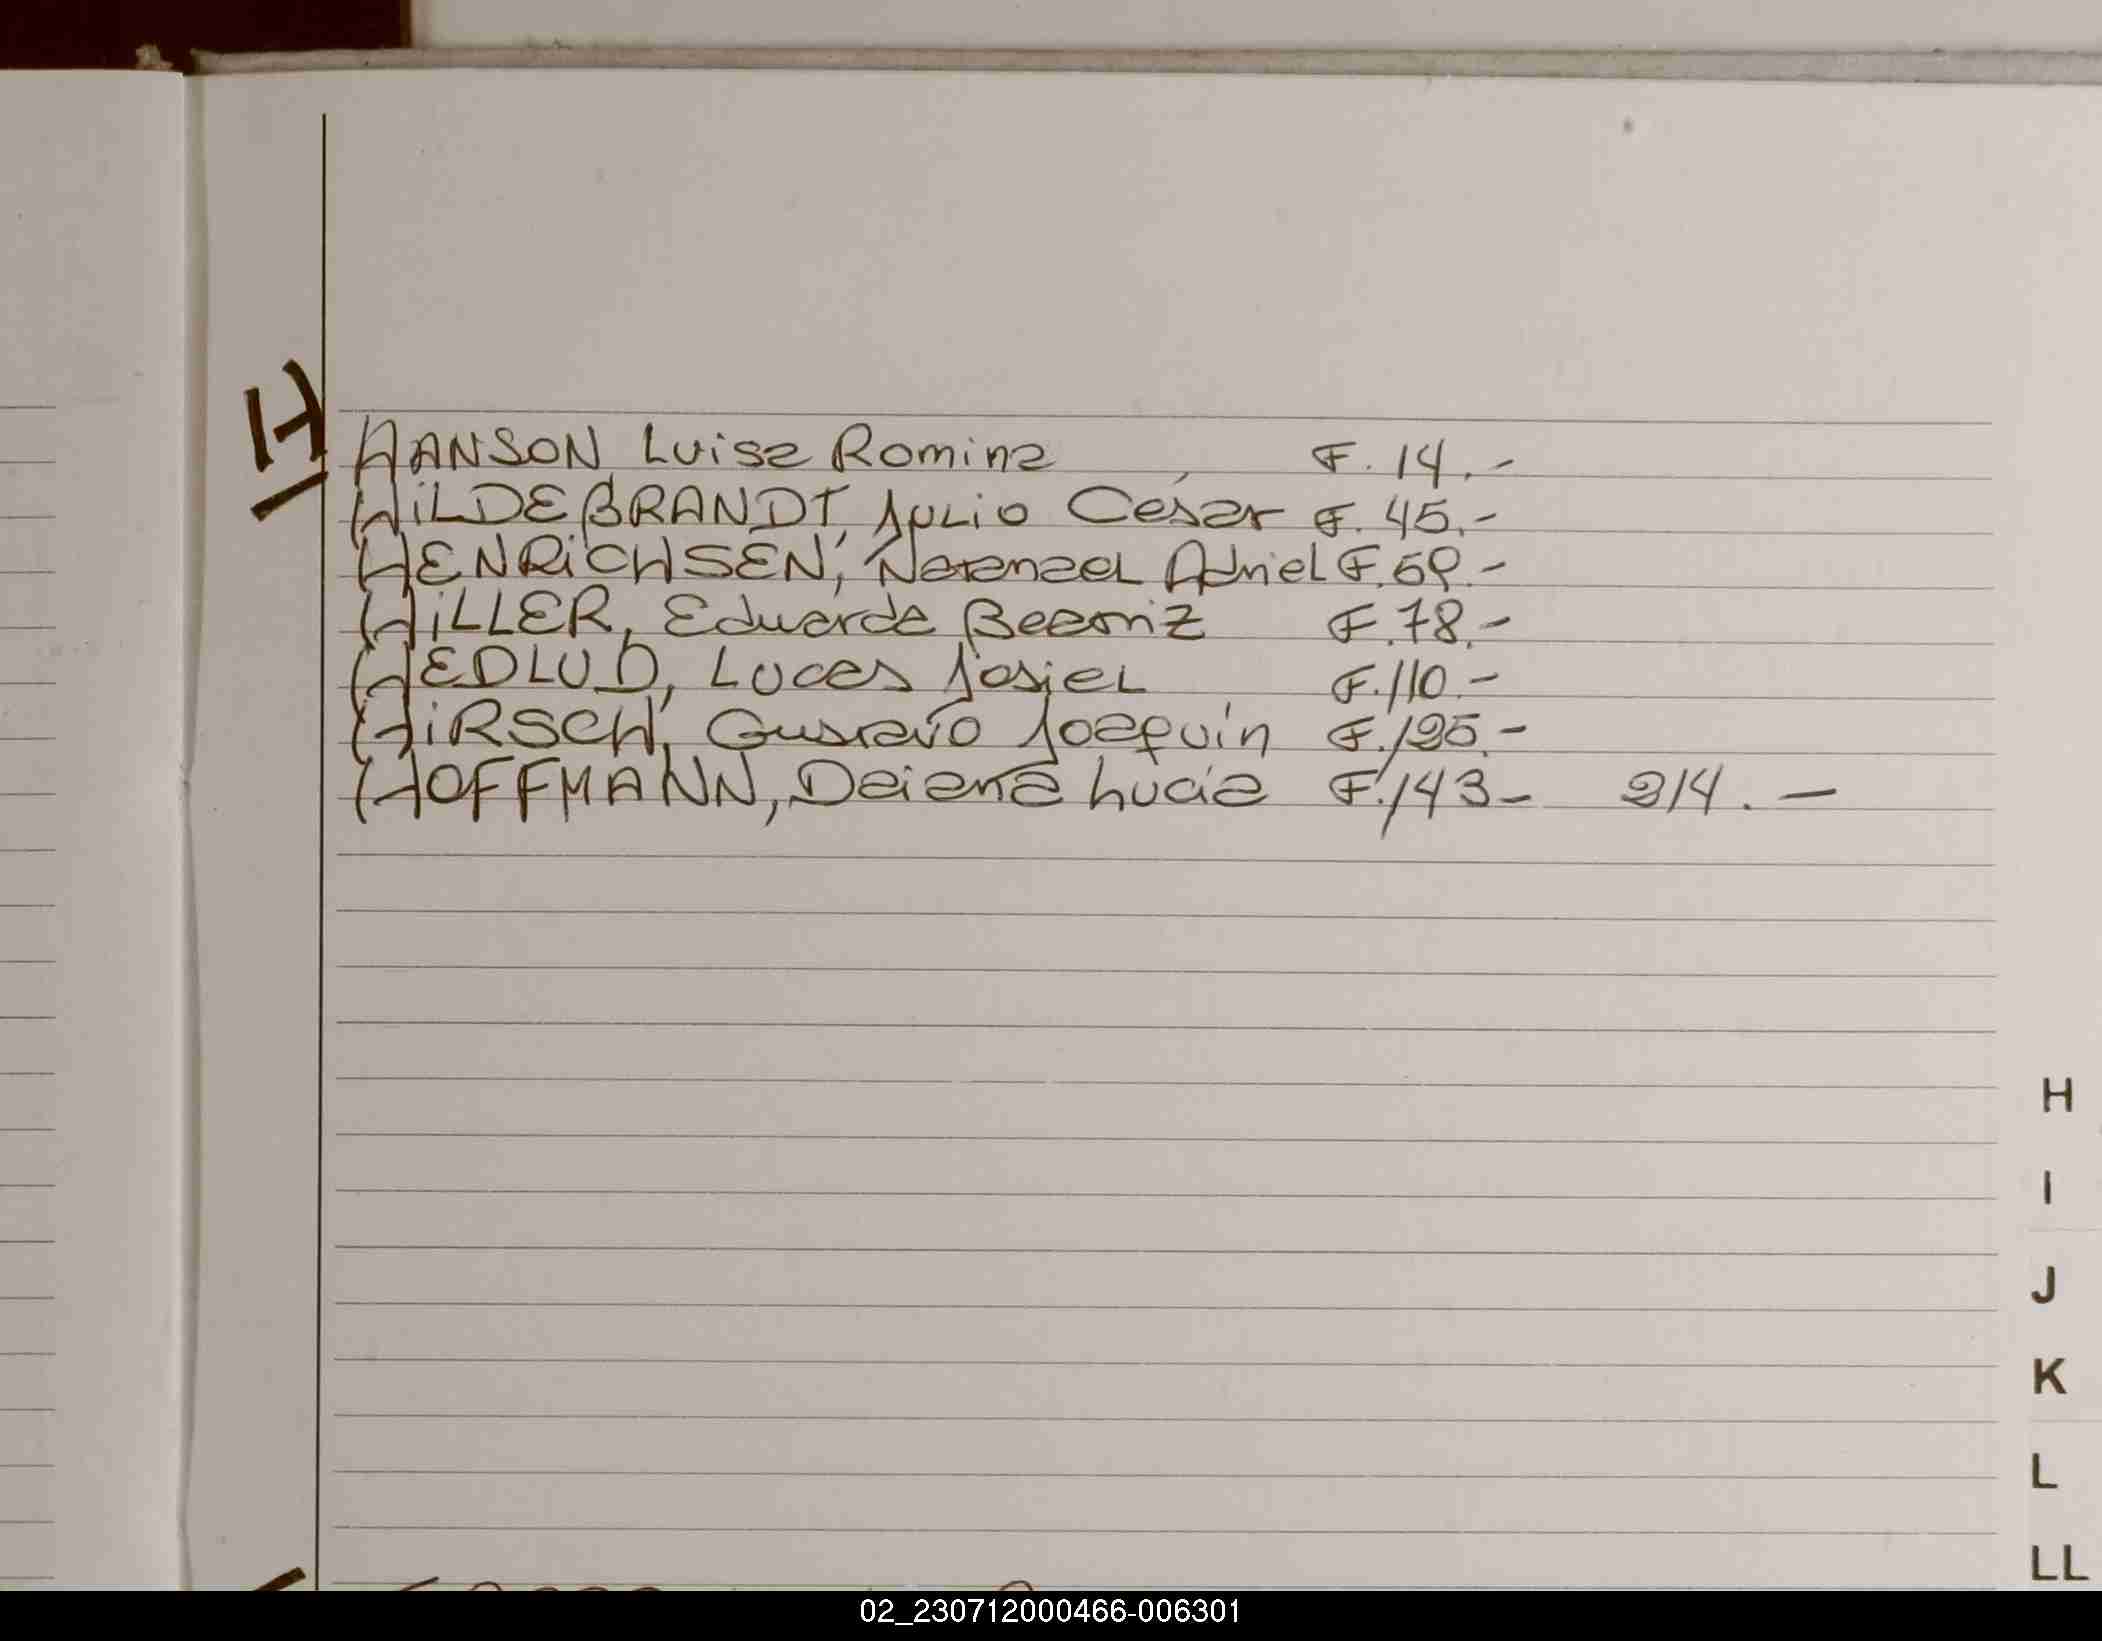 H
HANSON, Luisa Romina F. 14.-
HILDEBRANDT, Julio César F. 45.-
HENRICHSEN, Natanael Adriel F. 59.-
HILLER, Eduarda Beatriz F. 78.-
HEDLUD, Lucas Josiel F. 110.-
HIRSCH, Gustavo Joaquín F. 125.-
HOFFMANN, Daiana Lucía F. 143- 214.-
H
I
J
K
L
LL
02_230712000466-006301